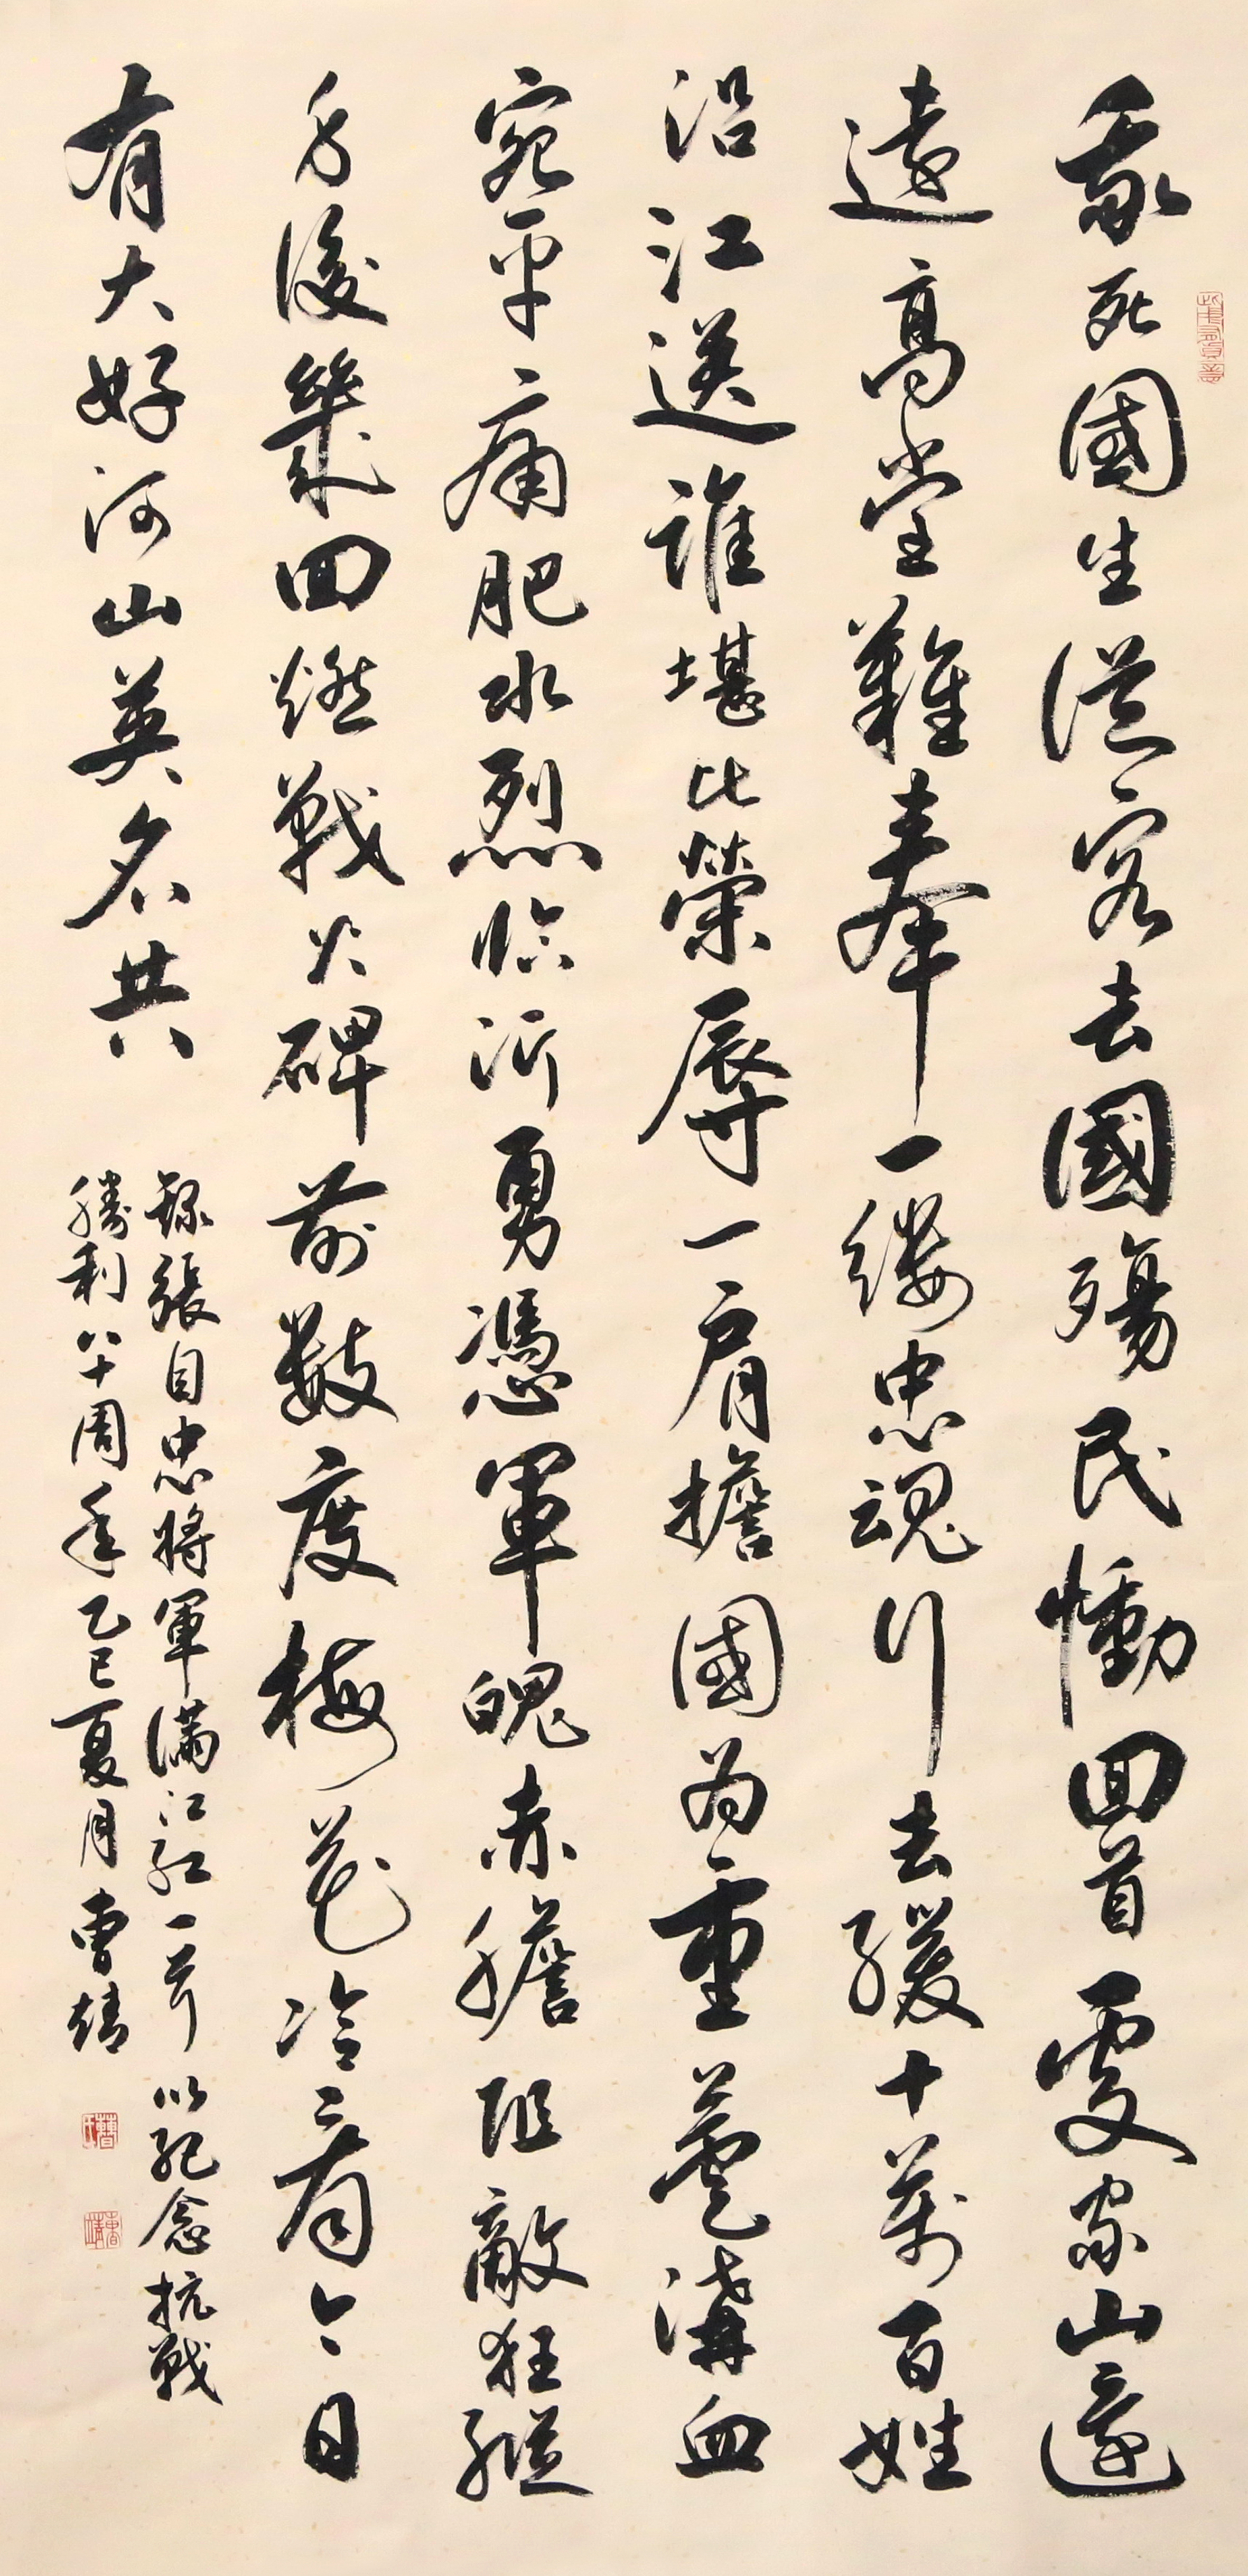 我死國生從容去國殤民慟回首處家山遼
遠高堂難奉一縷忠魂行去緩十萬百姓
沿江送誰堪比榮辱一肩擔國為重蘆溝血
宛平痛肥水烈臨沂勇憑軍魄赤膽阻敵狂縱
身後幾回燃戰火碑前數度梅花冷看今日
有大好河山英名共
錄張自忠將軍滿江紅一首以紀念抗戰
勝利八十周年乙巳夏月曹靖